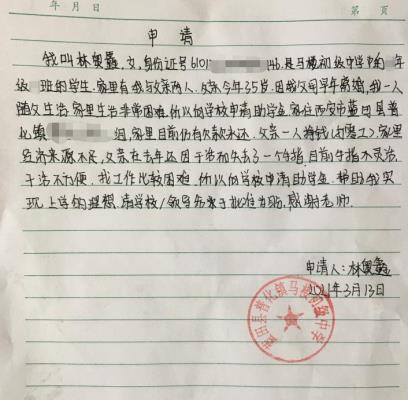 年 月 日 第 页
申 请
我叫林奥鑫,女,身份证号6101 146,是马楼初级中学的 年
级 班的学生,家里有我与父亲两人,父亲今年35岁,因我父母早年离婚,我一人
随父生活,家里生活非常困难,所以向学校申请助学金,家住西安市蓝田县普
化镇 组,家里目前仍有欠款未还,父亲一人挣钱(打零工)家里
经济来源不足,父亲在去年还因干活而失去了一个手指,目前手指不灵活,
干活不方便,找工作比较困难,所以向学校申请助学金,帮助我实
现上学的理想,请学校/领导 批准为盼,感谢老师.
申请人:林奥鑫
2021年3月13日
蓝田县普化镇马楼初级中学